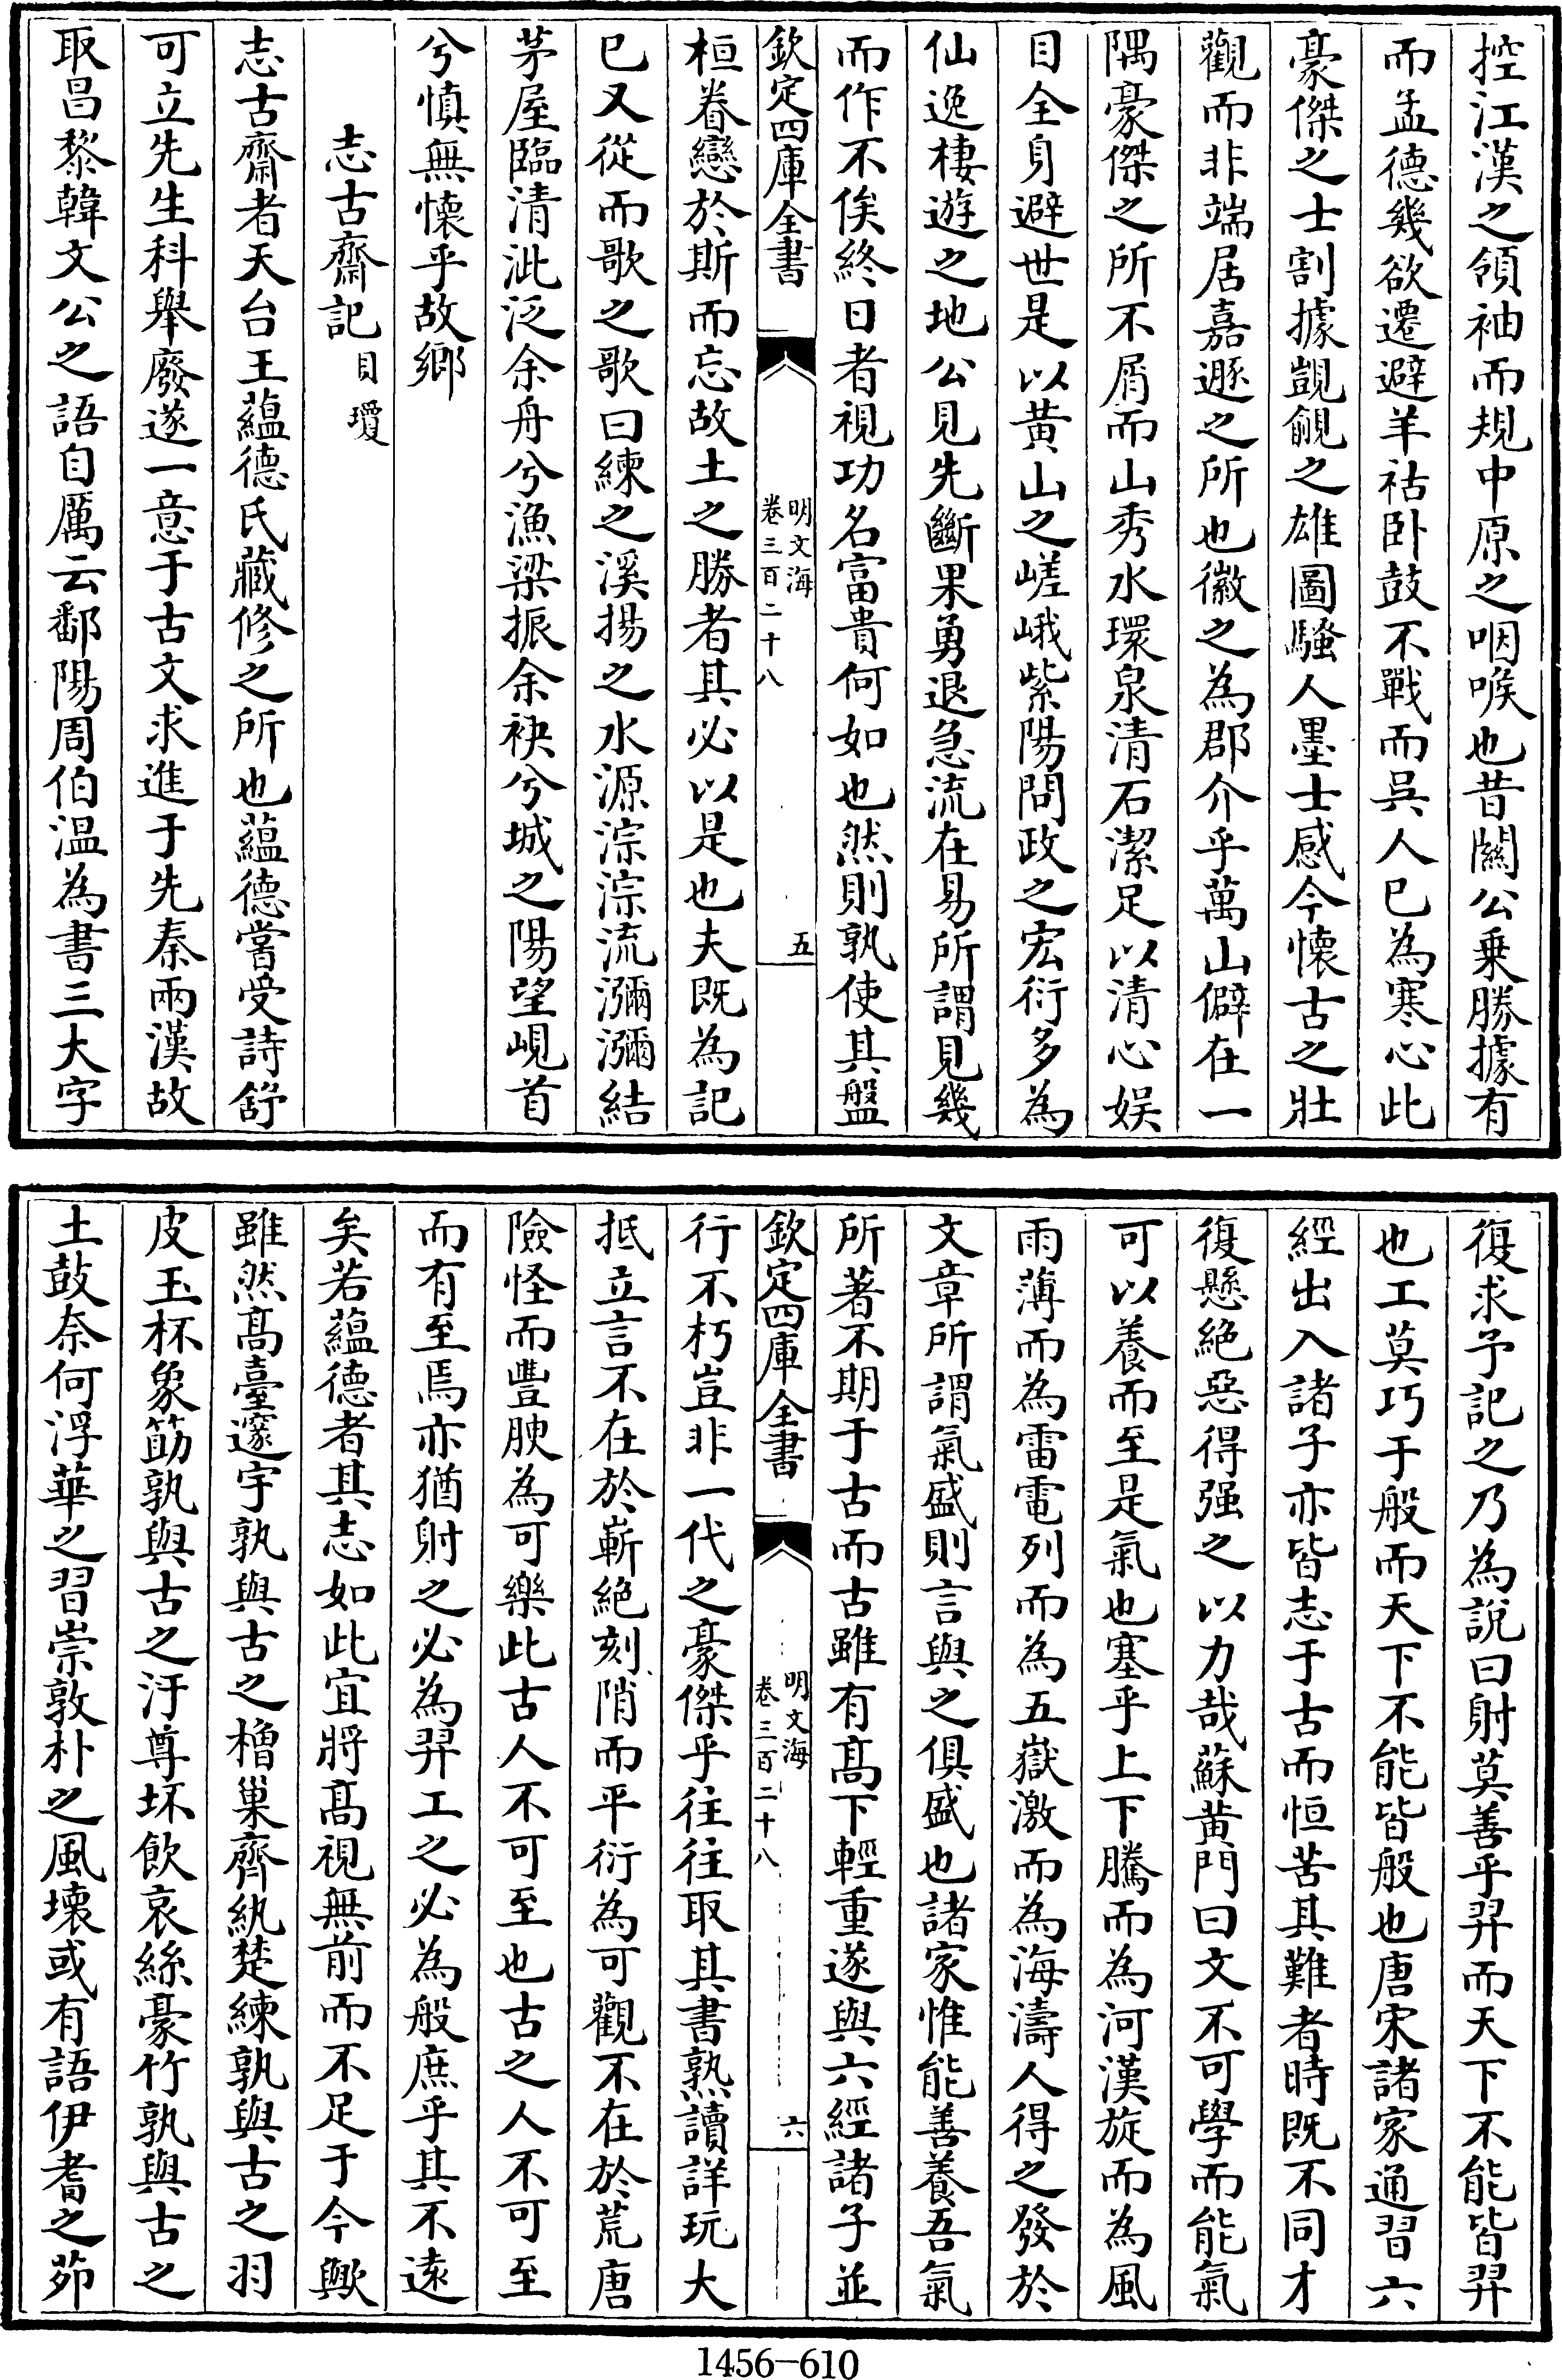 控江漢之領袖而規中原之咽喉也昔關公乗勝據有
而孟德幾欲遷避羊祜卧鼓不戰而吳人已為寒心此
豪傑之士割據覬覦之雄圖騷人墨士感今懷古之壯
觀而非端居嘉遯之所也徽之為郡介乎萬山僻在一
隅豪傑之所不屑而山秀水環泉清石潔足以清心娱
目全身避世是以黄山之嵯峨紫陽問政之宏衍多為
仙逸棲遊之地公見先斷果勇退急流在易所謂見幾
而作不俟終日者視功名富貴何如也然則孰使其盤
欽定四庫全書
明文海
卷三百二十八
五
桓眷戀於斯而忘故土之勝者其必以是也夫既為記
已又從而歌之歌曰練之溪揚之水源淙淙流瀰瀰結
茅屋臨清泚泛余舟兮漁梁振余袂兮城之陽望峴首
兮慎無懷乎故鄉
志古齋記 貝瓊
志古齋者天台王藴德氏藏修之所也藴德嘗受詩舒
可立先生科舉廢遂一意于古文求進于先秦兩漢故
取昌黎韓文公之語自厲云鄱陽周伯温為書三大字
復求予記之乃為說曰射莫善乎羿而天下不能皆羿
也工莫巧于般而天下不能皆般也唐宋諸家通習六
經出入諸子亦皆志于古而恒苦其難者時既不同才
復懸絶惡得强之以力哉蘇黄門曰文不可學而能氣
可以養而至是氣也塞乎上下騰而為河漢旋而為風
雨薄而為雷電列而為五嶽激而為海濤人得之發於
文章所謂氣盛則言與之俱盛也諸家惟能善養吾氣
所著不期于古而古雖有髙下輕重遂與六經諸子並
欽定四庫全書
明文海
卷三百二十八
六
行不朽豈非一代之豪傑乎往往取其書熟讀詳玩大
抵立言不在於嶄絶刻陗而平衍為可觀不在於荒唐
險怪而豐腴為可樂此古人不可至也古之人不可至
而有至焉亦猶射之必為羿工之必為般庶乎其不逺
矣若藴德者其志如此宜將髙視無前而不足于今歟
雖然髙臺邃宇孰與古之橧巢齊紈楚練孰與古之羽
皮玉杯象筯孰與古之汙尊坏飲哀絲豪竹孰與古之
土鼓奈何浮華之習崇敦朴之風壞或有語伊耆之茆
1456-610